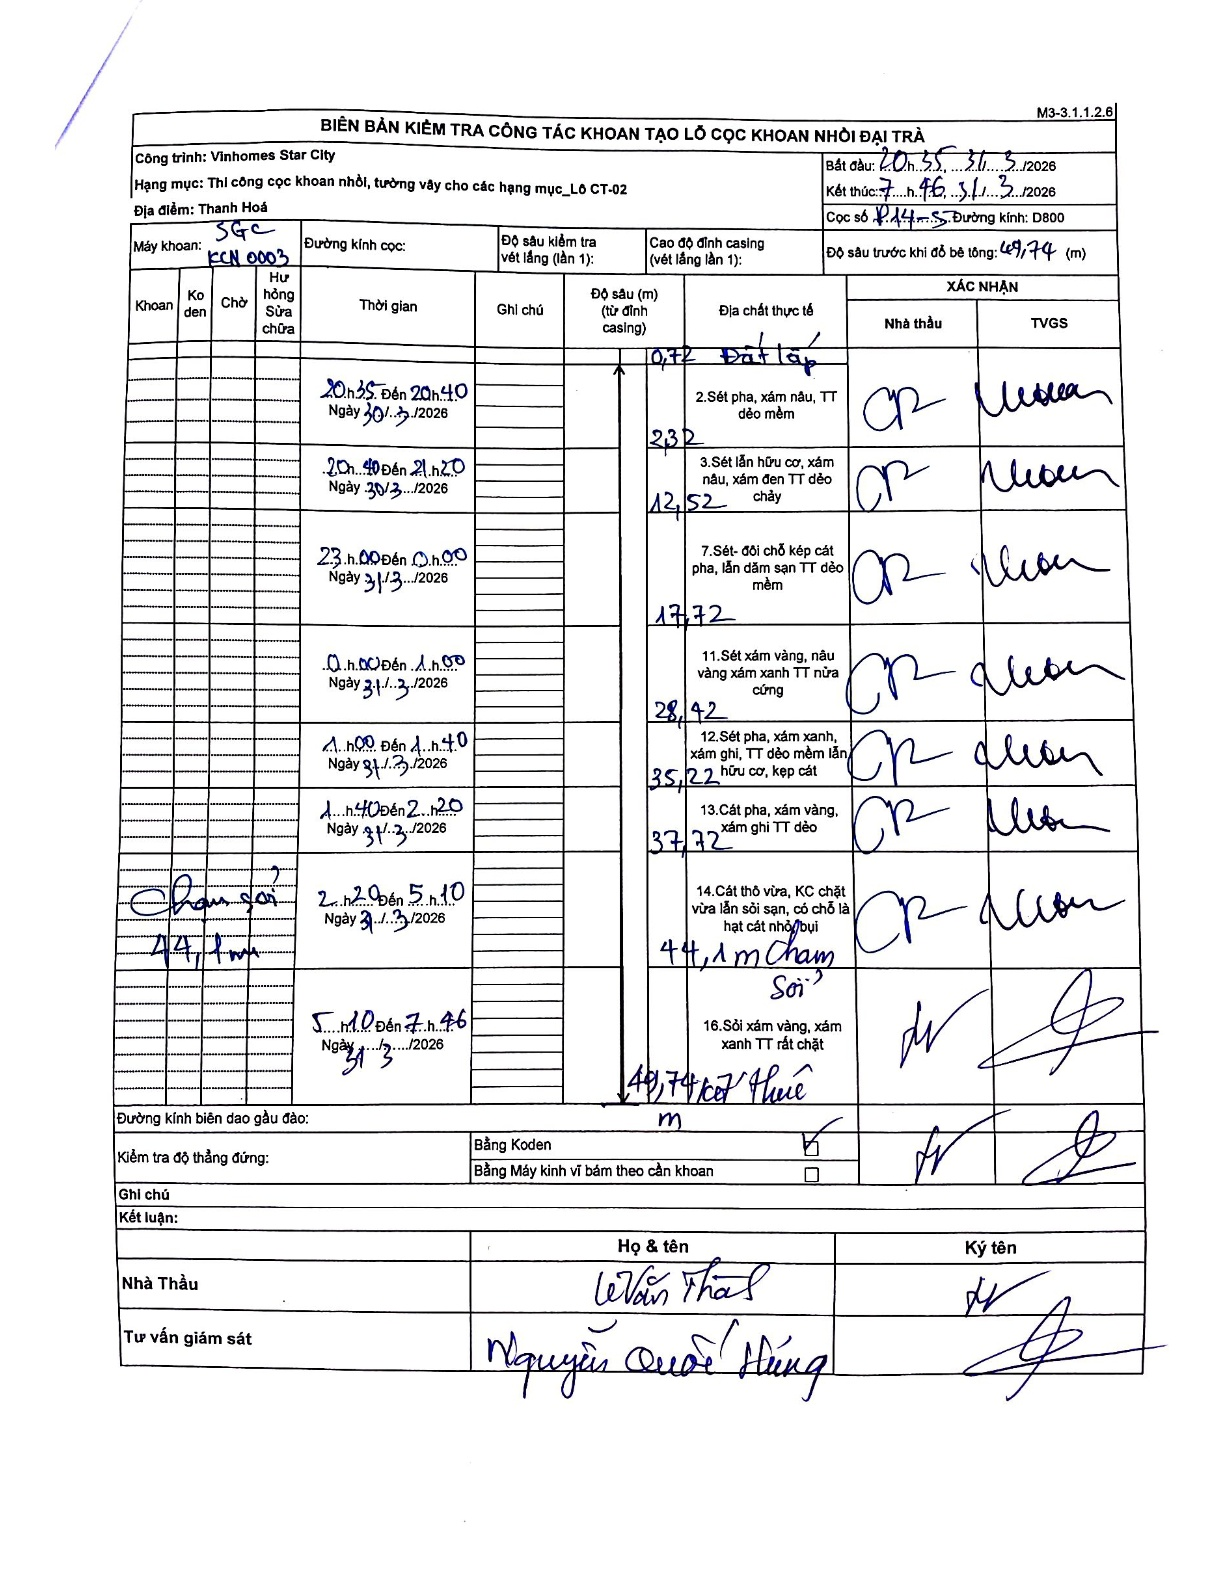 M3-3.1.1.2.6
BIÊN BẢN KIỂM TRA CÔNG TÁC KHOAN TẠO LỖ CỌC KHOAN NHỒI ĐẠI TRÀ
Công trình: Vinhomes Star City
Bắt đầu: 20h 35, 31/3/2026
Hạng mục: Thi công cọc khoan nhồi, tường vây cho các hạng mục_Lô CT-02
Kết thúc: 7 h 46, 31/3/2026
Địa điểm: Thanh Hoá
Cọc số P14-57 Đường kính: D800
Máy khoan: SGC KCN 0003
Đường kính cọc:
Độ sâu kiểm tra vét lắng (lần 1):
Cao độ đỉnh casing (vét lắng lần 1):
Độ sâu trước khi đổ bê tông: 49,74 (m)
Khoan
Ko den
Chờ
Hư hỏng Sửa chữa
Thời gian
Ghi chú
Độ sâu (m) (từ đỉnh casing)
Địa chất thực tế
XÁC NHẬN
Nhà thầu
TVGS
0,72 Đất lấp
20h35 Đến 20h40
Ngày 30/3/2026
2.Sét pha, xám nâu, TT dẻo mềm
2,32
20h 40 Đến 21h20
Ngày 30/3/2026
3.Sét lẫn hữu cơ, xám nâu, xám đen TT dẻo chảy
12,52
23.h.00 Đến 0.h.00
Ngày 31/3/2026
7.Sét- đôi chỗ kép cát pha, lẫn dăm sạn TT dẻo mềm
17,72
0.h.00 Đến 1.h.00
Ngày 31/3/2026
11.Sét xám vàng, nâu vàng xám xanh TT nửa cứng
28,42
1.h00 Đến 1.h.40
Ngày 31/3/2026
12.Sét pha, xám xanh, xám ghi, TT dẻo mềm lẫn hữu cơ, kẹp cát
35,22
1.h40 Đến 2.h20
Ngày 31/3/2026
13.Cát pha, xám vàng, xám ghi TT dẻo
37,72
Chạm sỏi
44,1m
2.h20 Đến 5.h10
Ngày 31/3/2026
14.Cát thô vừa, KC chặt vừa lẫn sỏi sạn, có chỗ là hạt cát nhỏ, bụi
44,1m Chạm
Sỏi
5.h10 Đến 7.h.46
Ngày 31/3/2026
16.Sỏi xám vàng, xám xanh TT rất chặt
49,74 m kết thúc
Đường kính biên dao gầu đào:
Kiểm tra độ thẳng đứng:
Bằng Koden
Bằng Máy kinh vĩ bám theo cần khoan
Ghi chú
Kết luận:
Họ & tên
Ký tên
Nhà Thầu
Lê Văn
Tư vấn giám sát
Nguyễn Quốc Hùng